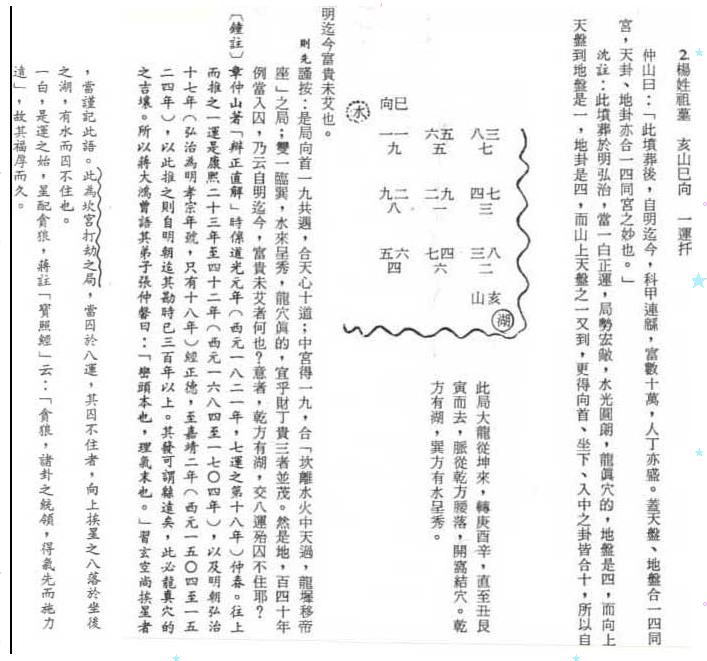 2.楊姓祖墓 亥山巳向 一運扦
仲山曰:「此墳葬後,自明迄今,科甲連緜,富數十萬,人丁亦盛。蓋天盤、地盤合一四同
宮,天卦、地卦亦合一四同宮之妙也。」
沈註:此墳葬於明弘治,當一白正運,局勢宏敞,水光圓朗,龍眞穴的,地盤是四,而向上
天盤到地盤是一,地卦是四,而山上天盤之一又到,更得向首、坐下、入中之卦皆合十,所以自
水
向巳
一一 六五 八三
九 五 七
九二 二九 四七
八 一 三
五六 七四 三八
四 六 二
山亥
湖
此局大龍從坤來,轉庚酉辛,直至丑艮
寅而去,脈從乾方腰落,開窩結穴。乾
方有湖,巽方有水呈秀。
明迄今富貴未艾也。
則先謹按:是局向首一九共遇,合天心十道;中宮得一九,合「坎離水火中天過,龍墀移帝
座」之局;雙一臨巽,水來呈秀,龍穴眞的,宜乎財丁貴三者並茂。然是地,百四十年
例當入囚,乃云自明迄今,富貴未艾者何也?意者,乾方有湖,交八運殆囚不住耶?
〔鐘註〕章仲山著「辯正直解」時係道光元年(西元一八二一年,七運之第十八年)仲春。往上
而推之一運是康熙二十三年至四十二年(西元一六八四至一七〇四年),以及明朝弘治
十七年(弘治為明孝宗年號,只有十八年)經正德,至嘉靖二年(西元一五〇四至一五
二四年),以此推之則自明朝迄其勘時已三百年以上。其發可謂緜遠矣,此必龍真穴的
之吉壤。所以蔣大鴻曾語其弟子張仲馨曰:「巒頭本也,理氣末也。」習玄空尚挨星者
,當謹記此語。此為坎宮打劫之局,當囚於八運,其囚不住者,向上挨星之八落於坐後
之湖,有水而囚不住也。
一白,是運之始,星配貪狼,蔣註「寶照經」云:「貪狼,諸卦之統領,得氣先而施力
遠」,故其福厚而久。